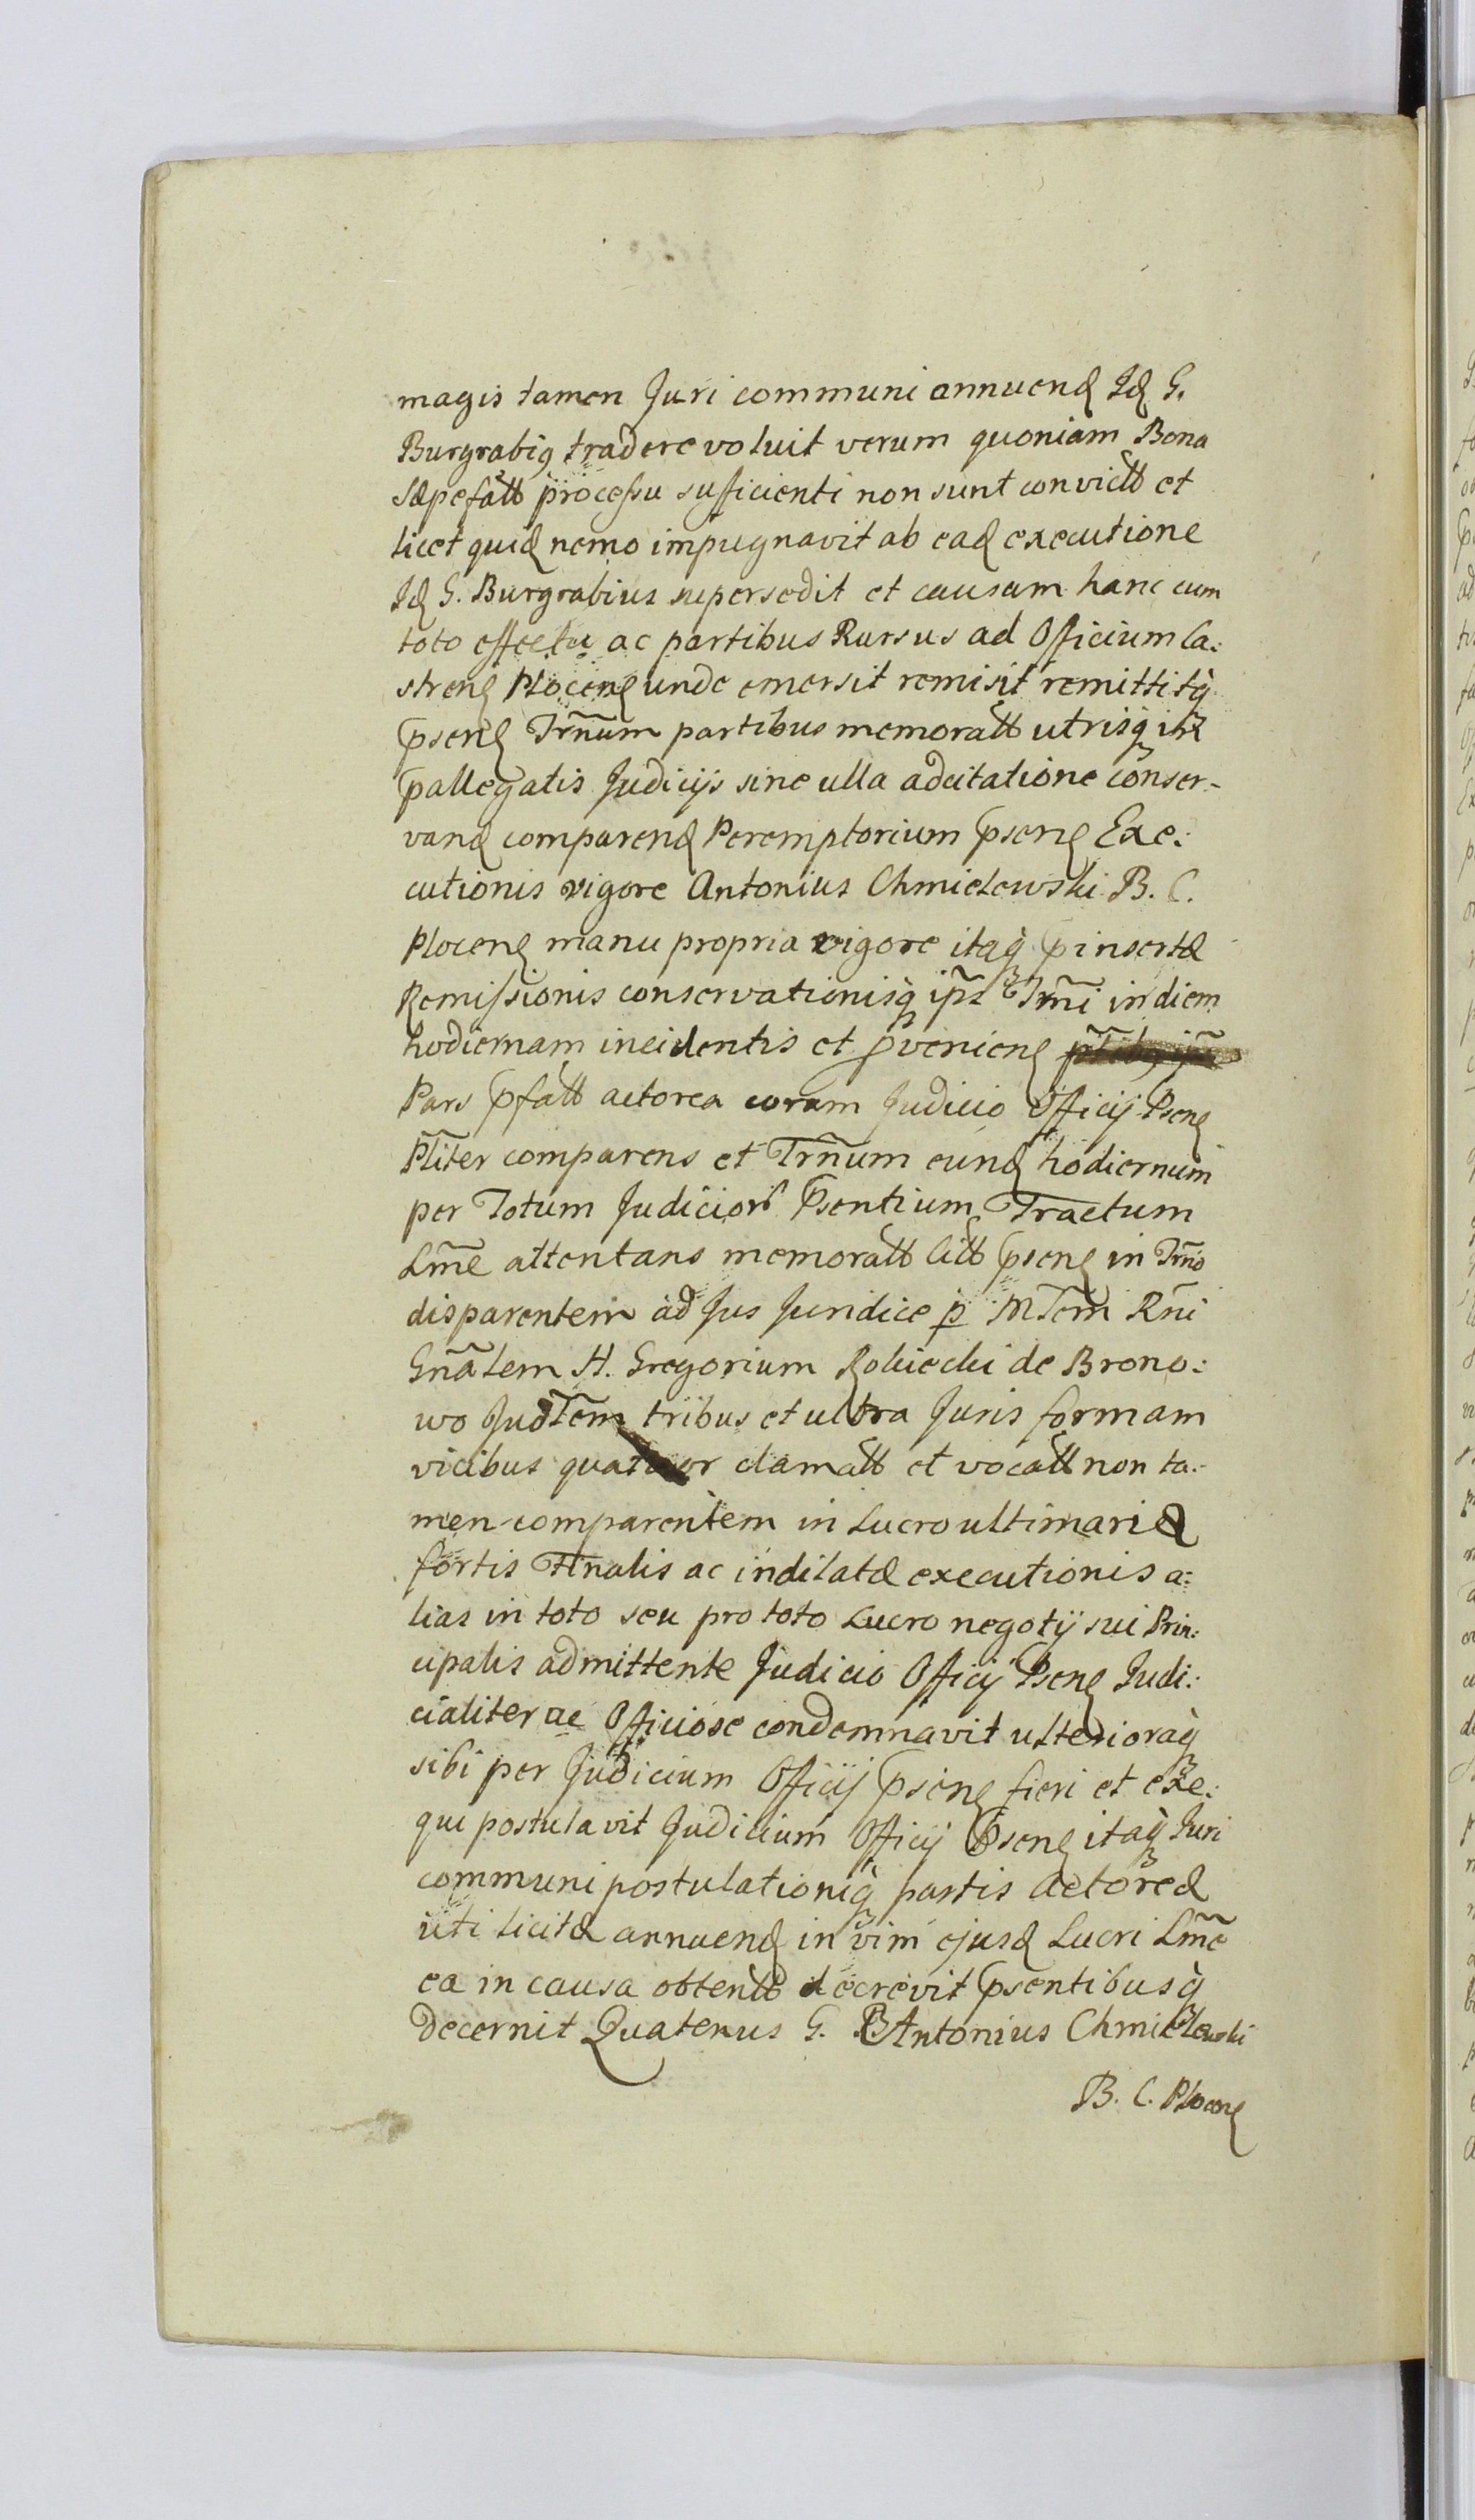 magis tamen Juri communi annuend Id G.
Burgrabiq tradere voluit verum quoniam Bona
Sæpefatt processu sufficienti non sunt convictt et
licet quid nemo impugnavit ab ead executione
Id G. Burgrabius supersedit et causam hanc cum
toto effectu ac partibus Rursus ad Officium Ca:
stren Plocen unde emersit remisit remittitq
psen Trñum partibus memoratt utrisq in
pallegatis Judicijs sine ulla adcitatione conser-
vand comparend Peremptorium psen Exe:
cutionis vigore Antonius Chmielewski B. C.
Plocen manu propria vigore itaq pinsertæ
Remissionis conservationisq ips Trñi in diem
hodiernam incidentis et pvenien
Pars pfatt actorea coram Judicio Officij Psen
Pliter comparens et Trñum eund hodiernum
per Totum Judicior Psentium Tractum
Lme attentans memoratt Citt psen in Trño
disparentem ad Jus Juridice p Mtem Rñi
Gñalem H. Gregorium Robiecki de Brono:
wo Judtem tribus et ultra Juris formam
vicibus quatuor clamatt et vocatt non ta:
men comparentem in Lucro ultimariæ
fortis Finalis ac indilatæ executionis a:
lias in toto seu pro toto Lucro negotij sui Prin:
cipalis admittente Judicio Officij Psen Judi:
cialiter ac Officiose condemnavit ulterioraq
sibi per Judicium Officij psen fieri et exe:
qui postulavit Judicium Officij Psen itaq Juri
communi postulationiq partis actoreæ
uti licitæ annuend in vim ejusd Lucri Lme
ea in causa obtentt decrevit psentibusq
decernit Quatenus G. Antonius Chmielewski
B. C. Plocen